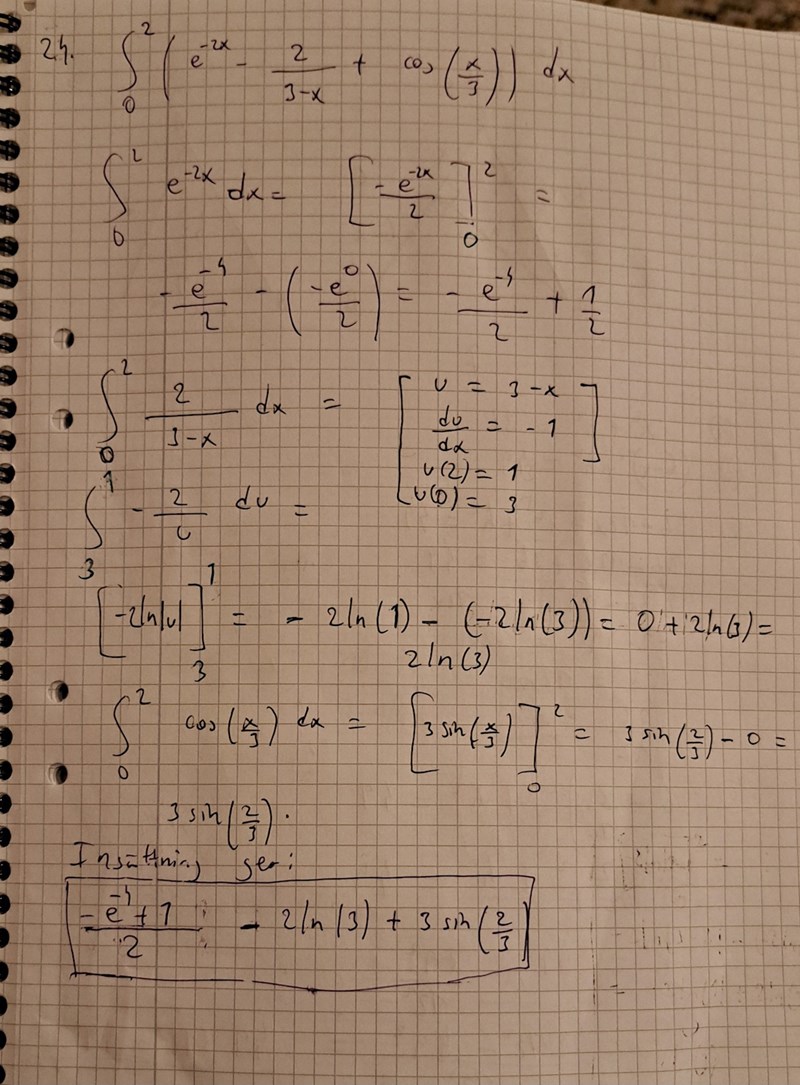 24. ∫₀² (e^{-2x} - 2/(3-x) + cos(x/3)) dx
∫₀² e^{-2x} dx = [-e^{-2x}/2]₀² =
-e^{-4}/2 - (-e^{0}/2) = -e^{-4}/2 + 1/2
∫₀² 2/(3-x) dx = [u = 3-x
du/dx = -1
u(2) = 1
u(0) = 3]
∫₃¹ -2/u du =
[-2ln|u|]₃¹ = -2ln(1) - (-2ln(3)) = 0 + 2ln(3) =
2ln(3)
∫₀² cos(x/3) dx = [3 sin(x/3)]₀² = 3 sin(2/3) - 0 =
3 sin(2/3).
Insättning ger:
(-e^{-4}+1)/2 - 2ln(3) + 3 sin(2/3)